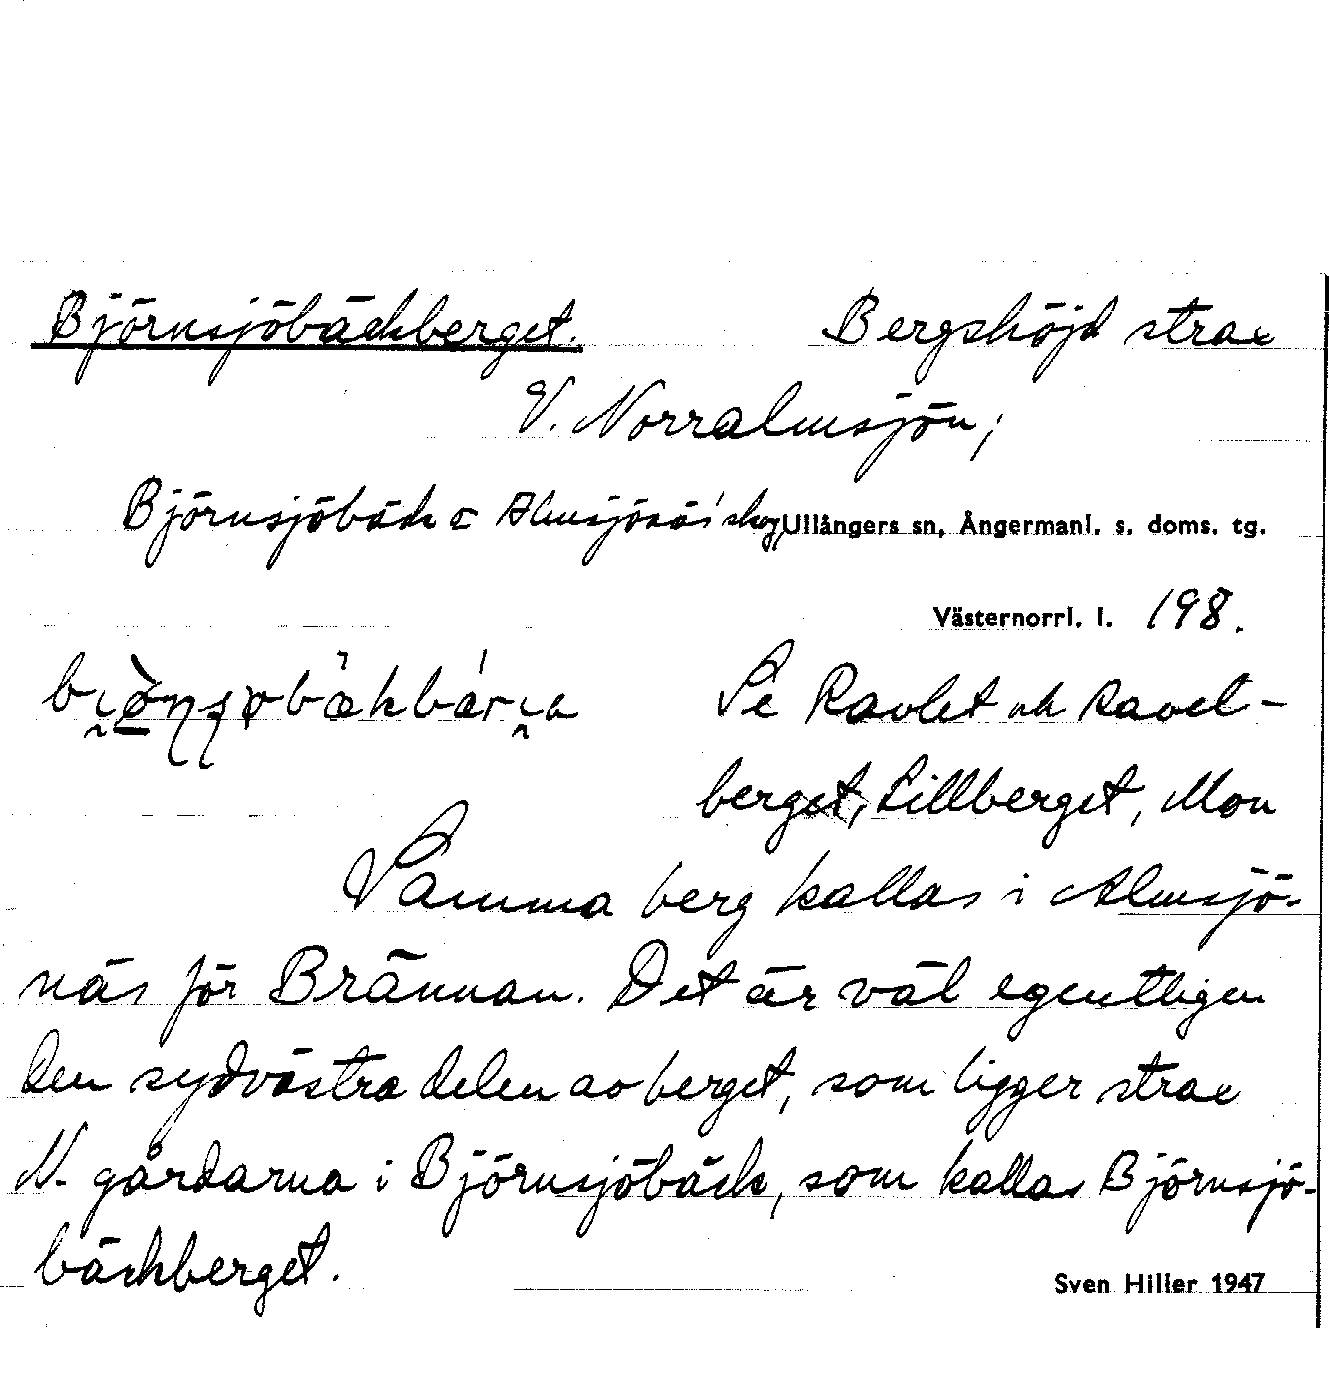 Björnsjöbäckberget. Bergshöjd strax
V. Norralmsjön;
Björnsjöbäck Almsjönäs' skog, Ullångers sn, Ångermanl. s. doms. tg.
Västernorrl. l. 198.
Se Ravlet och Ravel-
berget, Lillberget, Mon
Samma berg kallas i Almsjö-
näs för Brännan. Det är väl egentligen
den sydvästra delen av berget, som ligger strax
N. gårdarna i Björnsjöbäck, som kallas Björnsjö-
bäckberget.
Sven Hiller 1947